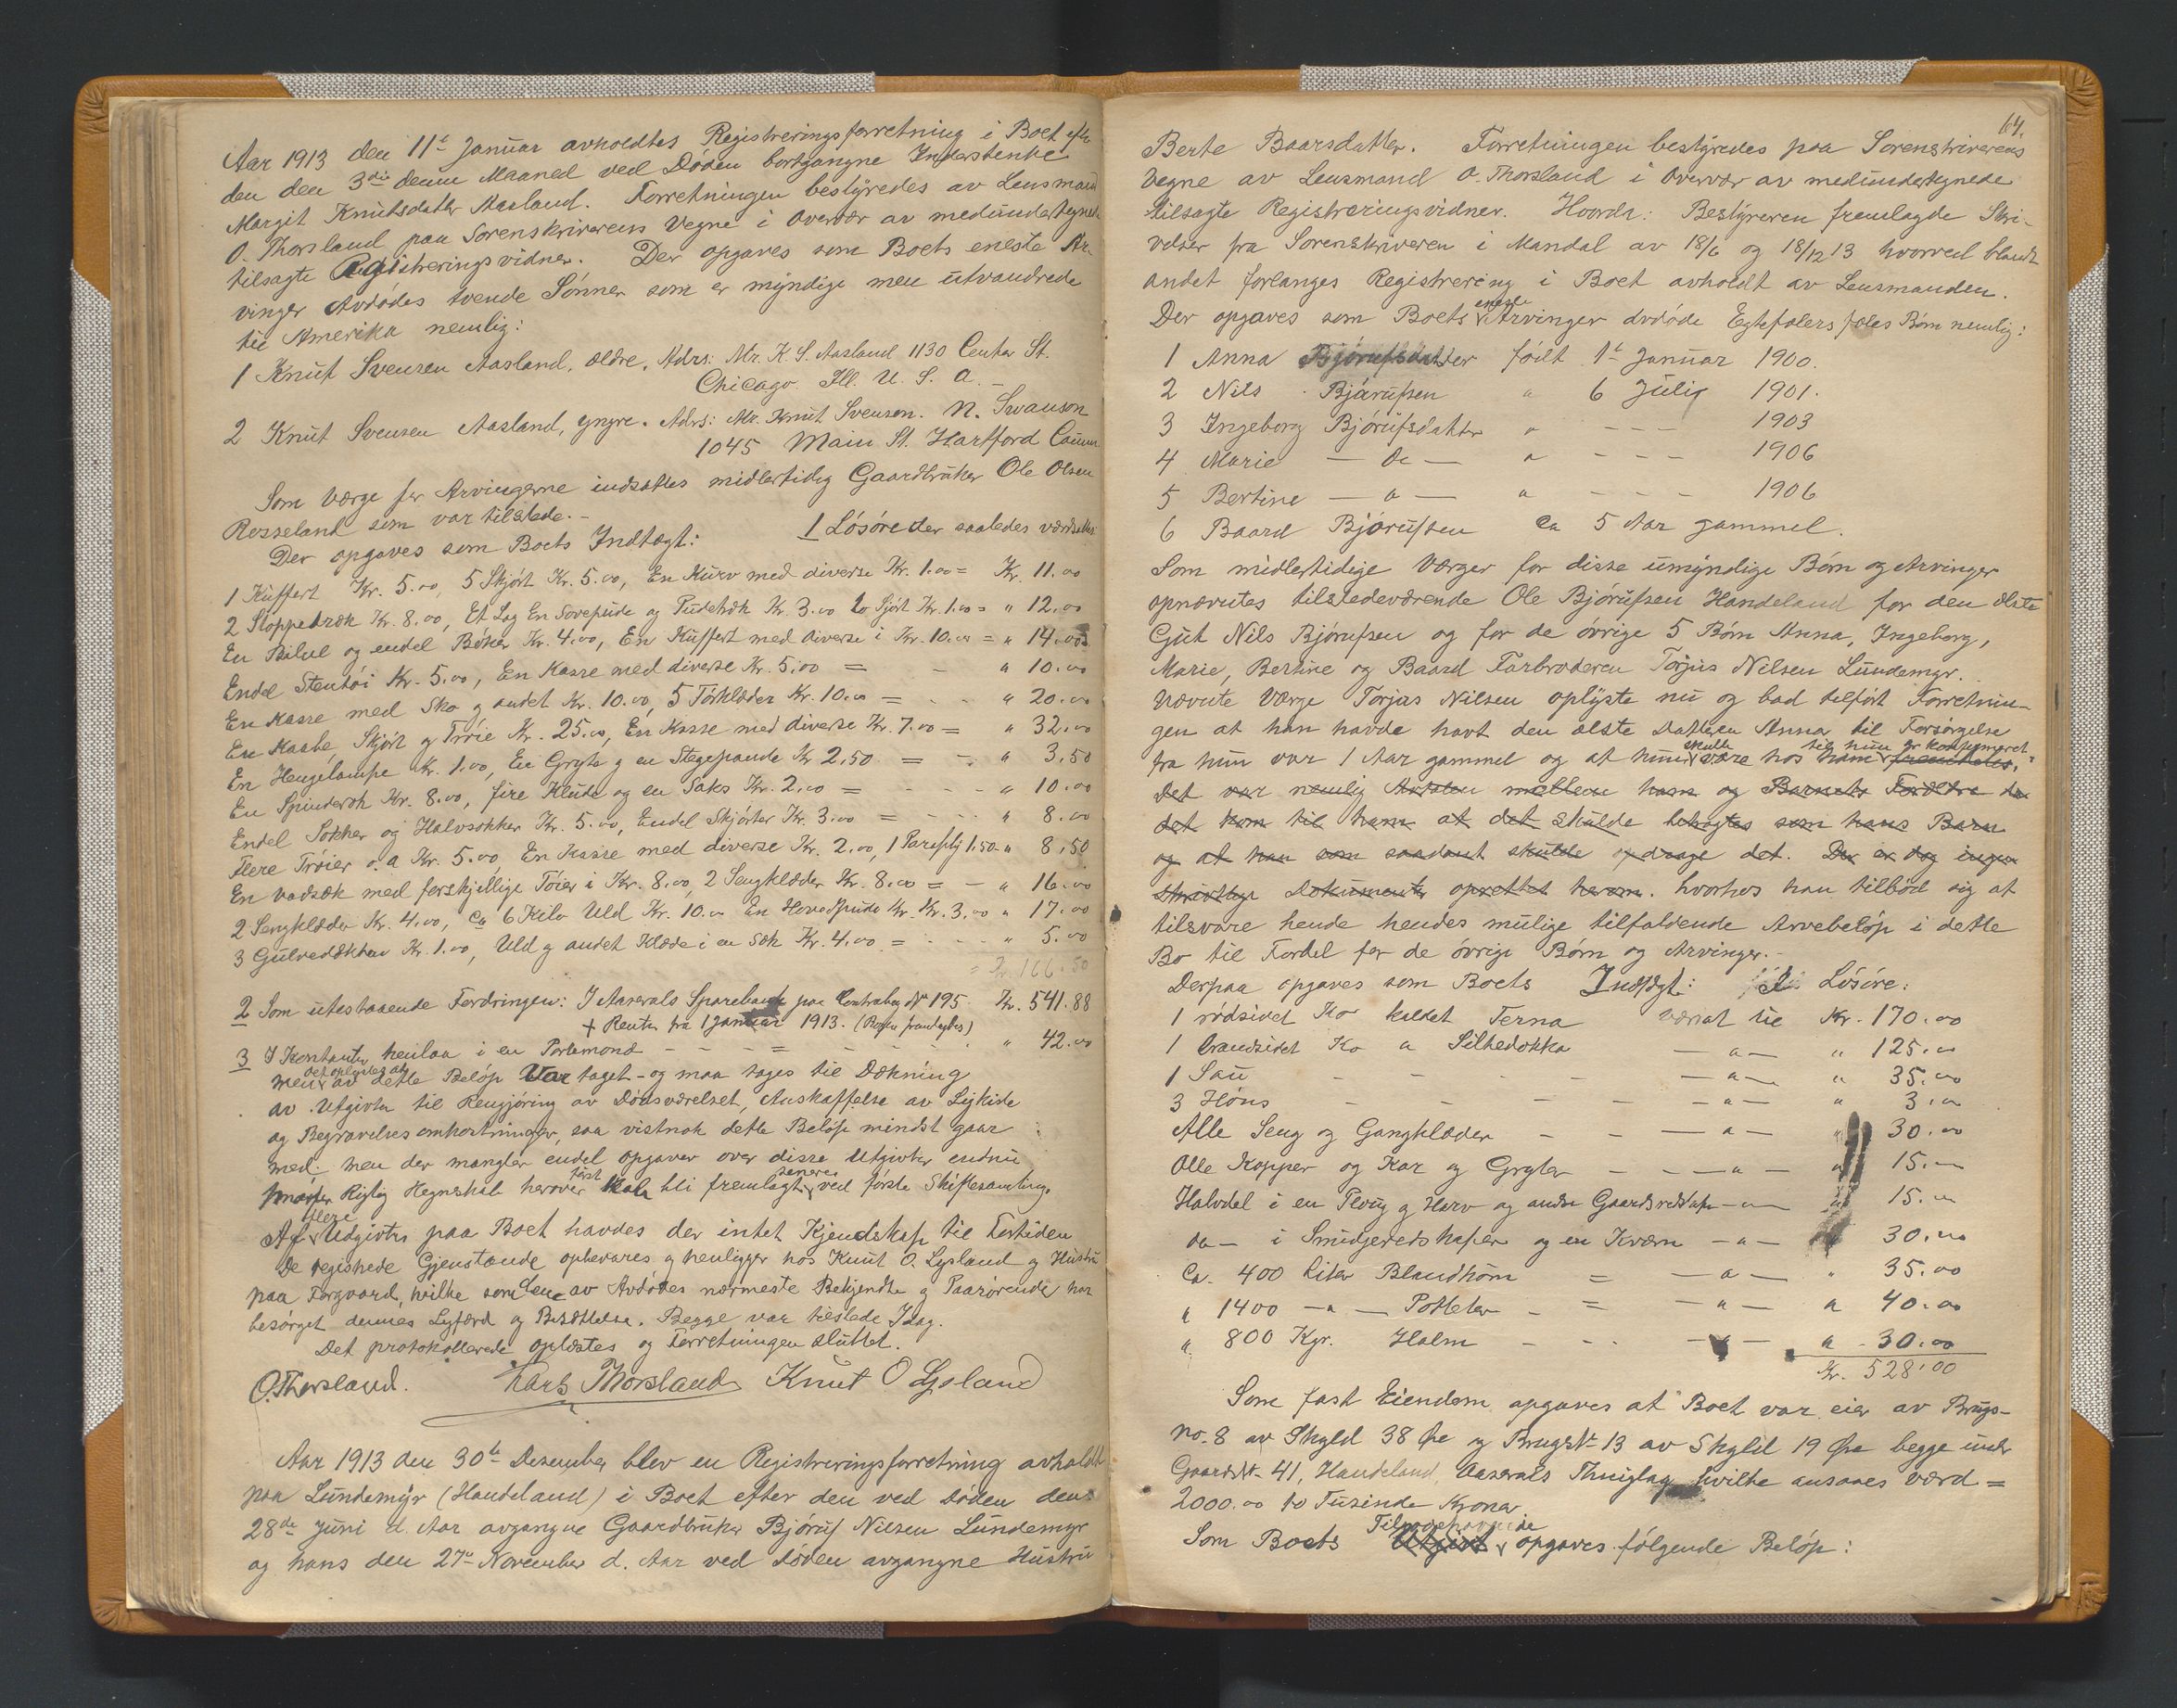 Aar 1913 den 11te Januar avholdtes Registreringsforretning i Boet efter
den den 3die denne Maaned ved Døden bortgangne Inderstenke
Margit Knutsdatter Aasland. Forretningen bestyredes av Lensmand
O. Thorsland paa Sorenskriverens Vegne i Overvær av medundertegnede
tilsagte Registreringsvidner. Der opgaves som Boets eneste Ar-
vinger Avdødes tvende Sønner som er myndige men utvandrede
til Amerika nemlig:
1 Knut Svensen Aasland, ældre, Adrs: Mr. K. S. Aasland 1130 Center St.
Chicago. Ill. U. S. A. –
2 Knut Svensen Aasland, yngre. Adrs: Mr. Knut Svensen. N. Swanson
1045 Main St. Hartford Conn
Som Værge for Arvingerne indsattes midlertidig Gaardbruker Ole Olsen
Rosseland som var tilstede. –
Der opgaves som Boets Indtægt: 1 Løsøre der saaledes værdsattes
1 Kuffert Kr. 5.00, 5 Skjørt Kr. 5.00, En Kurv med diverse Kr. 1.00 = Kr. 11.00
2 Stoppedræk Kr. 8.00, Et Lag En Sovepude og Pudetræk Kr. 3.00 to Sjört Kr. 1.00 = " 12.00
En Bibel og endel Bøker Kr. 4.00, En Kuffert med diverse i Kr. 10.00 = " 14.00
Endel Stentøi Kr. 5.00, En Kasse med diverse Kr. 5.00 = – " 10.00
En Kasse med Sko og andet Kr. 10.00, 5 Tørklæder Kr. 10.00 = - - " 20.00
En Kaabe, Skjørt og Trøie Kr. 25.00, En Kasse med diverse Kr. 7.00 = " 32.00
En Hengelampe Kr. 1.00, En Gryte og en Stegepande Kr 2,50 = - " 3,50
En Spinderok Kr. 8.00, fire Klude og en Saks Kr. 2.00 = - - - " 10.00
Endel Sokker og Halvsokker Kr. 5.00, Endel Skjørter Kr. 3.00 = - - - " 8.00
Flere Trøier o.a Kr. 5.00, En Kasse med diverse Kr. 2.00, 1 Paraply 1.50 " 8,50
En vadsæk med forskjellige Tøier i Kr. 8.00, 2 Sengklæder Kr. 8.00 = – " 16.00
2 Sengklæder Kr. 4.00, ca 6 Kilo Uld Kr. 10.00 En Hovedpude Kr. 3.00 " 17.00
3 Gulvedækken Kr. 1.00, Uld og andet Klæde i en Sæk Kr. 4.00 = - - - " 5.00
= Kr. 166.50
2 Som utestaaende Fordringer: I Aaserals Sparebank paa Contrabog No 195. Kr. 541.88
+ Renter fra 1 Januar 1913. (Bogen fremlagdes)
3 I Kontanter henlaa i en Portemonæ - - - = - - - " 42.00
men det oplystes at av dette Beløp Var taget - og maa tages til Dækning
av Utgivter til Rengjøring av Dødsværelset, Anskaffelse av Ligkiste
og Begravelsesomkostninger, saa vistnok dette Beløp mindst gaar
med: men der mangler endel opgaver over disse Utgivter endnu
Rigtig Regnskab herover først bli fremlagt senere ved første Skiftesamling.
Af flere Udgivter paa Boet havdes der intet Kjendskap til Fortiden
De regisnede Gjenstande opbevares og henligger hos Knut O. Lysland og Hustru
paa Forgaard, hvilke som en av Avdødes nærmeste Bekjendte og Paarørende har
besørget dennes Ligfærd og Bisættelse. Begge var tilstede Idag.
Det protokollerede oplæstes og Forretningen sluttet.
O. Thorsland. Karl Thorsland Knut O Lysland
Aar 1913 den 30te Desember blev en Registreringsforretning avholdt
paa Lundemyr (Handeland) i Boet efter den ved Døden den
28de Juni d. Aar avgangne Gaardbruker Bjøruf Nilsen Lundemyr
og hans den 27de November d. Aar ved Døden avgangne Hustru
64.
Berte Baarsdatter. Forretningen bestyredes paa Sorenskriverens
Vegne av Lensmand O. Thorsland i Overvær av medundertegnede
tilsagte Registreringsvidner. Hvorda: Bestyreren fremlagde Skri-
velser fra Sorenskriveren i Mandal av 18/6 og 18/12 13 hvorved blandt
andet forlanges Registrering i Boet avholdt av Lensmanden.
Der opgaves som Boets eneste Arvinger avdøde Egtefolers føles Børn nemlig:
1 Anna Bjørufsdatter født 1te Januar 1900.
2 Nils Bjørufsen " 6 Julig 1901.
3 Ingeborg Bjørufsdatter " - - - 1903
4 Marie – do – " - - - 1906
5 Bertine – " – " - - - 1906
6 Baard Bjørufsen ca 5 Aar gammel.
Som midlertidige Værger for disse umyndige Børn og Arvinger
opnævntes tilstedeværende Ole Bjørufsen Handeland for den ælste
Gut Nils Bjørufsen og for de øvrige 5 Børn Anna, Ingeborg,
Marie, Bertine og Baard Farbroderen Torjus Nilsen Lundemyr.
Nævnte Værge Torjus Nilsen oplyste nu og bad tilført Forretnin-
gen at han havde havt den ælste Datteren Anna til Forsørgelse
fra hun var 1 Aar gammel og at hun skulle være hos ham til hun er konfirmeret. fremdeles.
Det var nemlig Avtalen mellem ham og Barnets Forældre da
det kom til ham at det skulde betragtes som hans Barn
og at han som saadant skulde opdrage det. Der er dog ingen
skriftlige Dokumenter oprettet herom. hvorhos han tilbød sig at
tilsvare hende hendes mulige tilfaldende Arvebeløp i dette
Bo til Fordel for de øvrige Børn og Arvinger. –
Derpaa opgaves som Boets Indtægt: Løsøre:
1 rødsidet Ko kaldet Terna værdt til Kr. 170.00
1 brandsidet Ko " Silkedokka – " – " 125.00
1 Sau - - - - – " – " 35.00
3 Høns - - - - – " – " 3.00
Alle Seng og Gangklæder - - – " – " 30.00
Alle Kopper og Kar og Gryter - - – " – " 15.00
Halvdel i en Ploug og Harv og andre Gaardsredskaper – " – " 15.00
do – i Smidjeredskaper og en Kværn – " – 30.00
Ca. 400 Liter Blandkorn = – " – " 35.00
" 1400 – " – Poteter - = – " – " 40.00
" 800 Kgr. Halm - - - – " – " 30.00
Kr. 528.00
Som fast Eiendom opgaves at Boet var eier av Brugs-
no. 8 av Skyld 38 Øre og Brugsno 13 av Skyld 19 Øre begge under
Gaardsno 41, Handeland, Aaserals Thinglag hvilke ansaaes værd =
2000.00 to Tusinde Kroner
Som Boets Utgivt Tilgodehavende opgaves følgende Beløp: